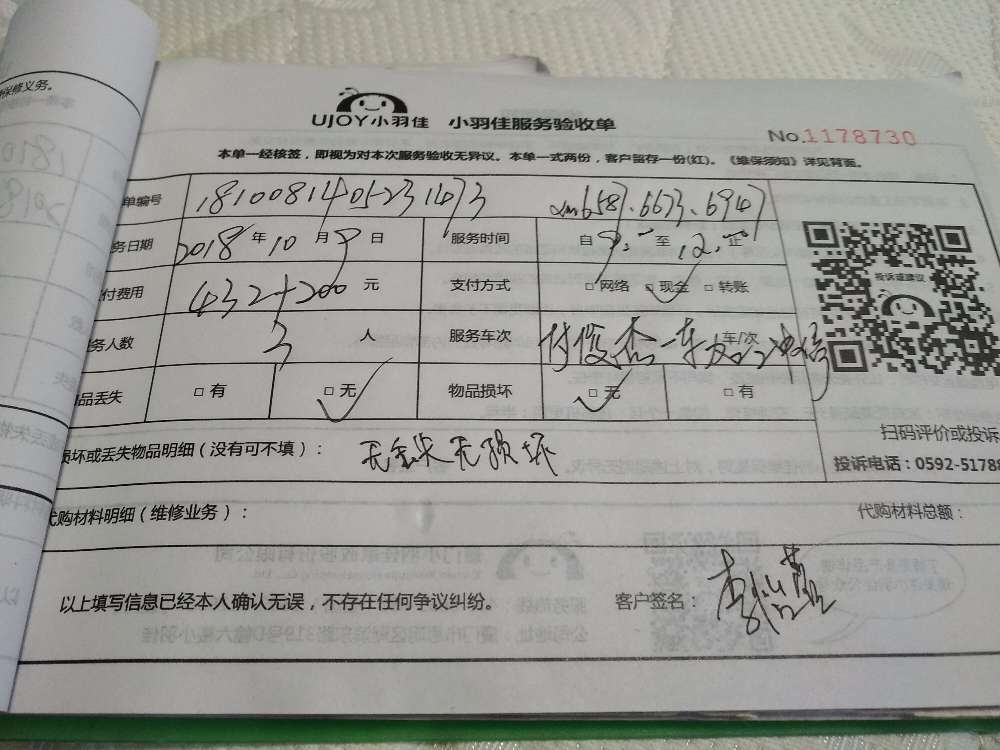 保修义务。
UJOY小羽佳 小羽佳服务验收单
No.1178730
本单一经核签，即视为对本次服务验收无异议。本单一式两份，客户留存一份(红)。《维保须知》详见背面。
单编号 1810081405231473 6587.6673.6947
务日期 2018年10月9日 服务时间 自9:00至12:00止
付费用 432+200元 支付方式 □网络 □现金 □转账
务人数 3人 服务车次 付俊杰一车 车/次
品丢失 □有 □无 物品损坏 □无 □有
投诉或建议
扫码评价或投诉
损坏或丢失物品明细(没有可不填)： 无丢失无损坏
投诉电话：0592-5178
代购材料明细(维修业务)： 代购材料总额：
以上填写信息已经本人确认无误，不存在任何争议纠纷。 客户签名：